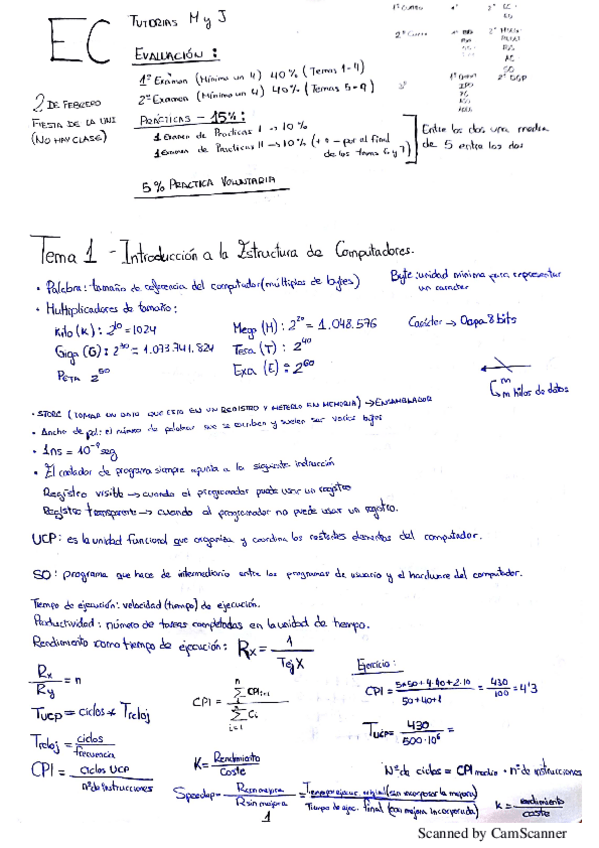 EC
TUTORIAS M y J
EVALUACIÓN:
1º Examen (Mínimo un 4) 40% (Temas 1-4)
2º Examen (Mínimo un 4) 40% (Temas 5-9)
2 DE FEBRERO
FIESTA DE LA UNI
(NO HAY CLASE)
PRÁCTICAS - 15%:
1 Examen de Practicas I → 10%
1 Examen de Practicas II → 10%
al final
de los temas 6 y 7)
Entre los dos una media
de 5 entre los dos
5% PRACTICA VOLUNTARIA
1º Curso
2º Curso
Tema 1 - Introducción a la Estructura de Computadores.
• Palabra: tamaño de referencia del computador (múltiplos de bytes)
Byte: unidad minima para representar
un caracter
• Multiplicadores de tamaño:
Kilo (K): 2^10 = 1024
Mega (M): 2^20 = 1.048.576
Carácter → Ocupa 8 bits
Giga (G): 2^30 = 1.073.741.824
Tera (T): 2^40
PETA 2^50
Exa (E): 2^60
m
m hilos de datos
• STORE (TOMAR UN DATO QUE ESTA EN UN REGISTRO Y METERLO EN MEMORIA) → ENSAMBLADOR
• Ancho de pal: el número de palabras que se escriben y suelen ser varios bytes
• 1ns = 10^-9 seg
• El contador de programa siempre apunta a la siguiente instrucción
Registro visible → cuando el programador puede usar un registro
Registro transparente → cuando el programador no puede usar un registro.
UCP: es la unidad funcional que organiza y coordina los restantes elementos del computador.
SO: programa que hace de intermediario entre los programas de usuario y el hardware del computador.
Tiempo de ejecución: velocidad (tiempo) de ejecución.
Productividad: número de tareas completadas en la unidad de tiempo.
Rendimiento como tiempo de ejecución: Rx = 1 / Tej X
Rx / Ry = n
Ejercicio:
CPI = 5*50+4*40+2*10 / 50+40+1 = 430 / 100 = 4'3
Tucp = ciclos * Treloj
Tucp = 430 / 500·10^6 =
Treloj = ciclos / frecuencia
CPI = ciclos UCP / nº de instrucciones
K = Rendimiento / coste
Nº de ciclos = CPI medio · nº de instrucciones
Speedup = Rcon mejora / Rsin mejora = Tiempo ejecuc. original (sin incorporar la mejora) / Tiempo de ejec. final (con mejora incorporada)
K = rendimiento / coste
1
Scanned by CamScanner